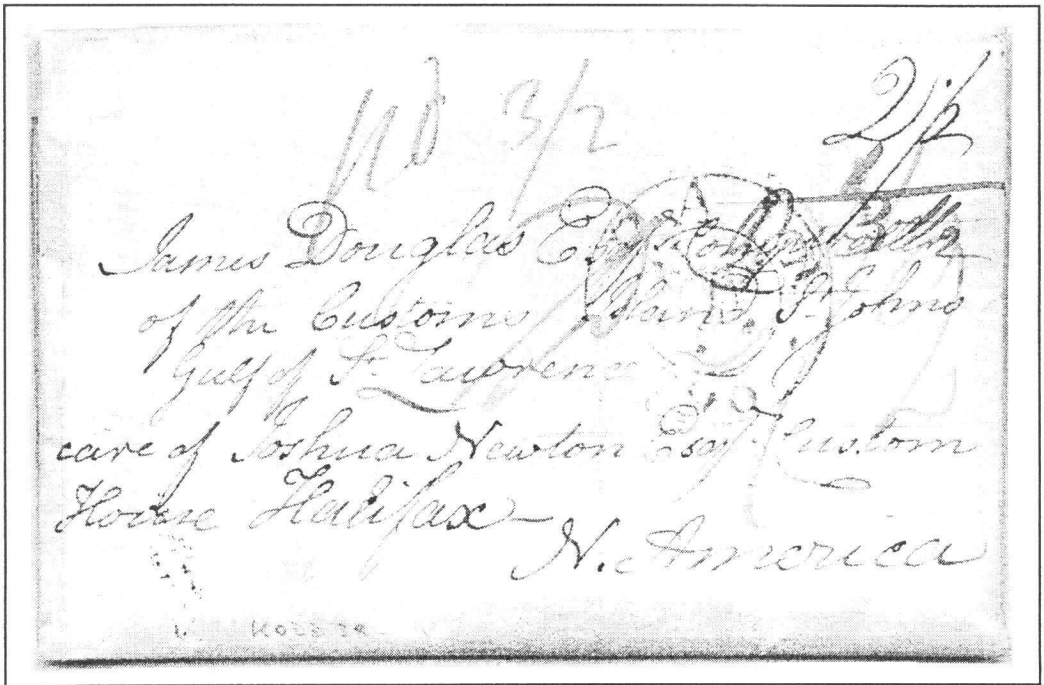 pd 3/2 2/2
James Douglas Esqr Comptroller
of the Customs Island St. Johns
Gulf of St. Lawrence
care of Joshua Newton Esqr Custom
House Halifax
N. America